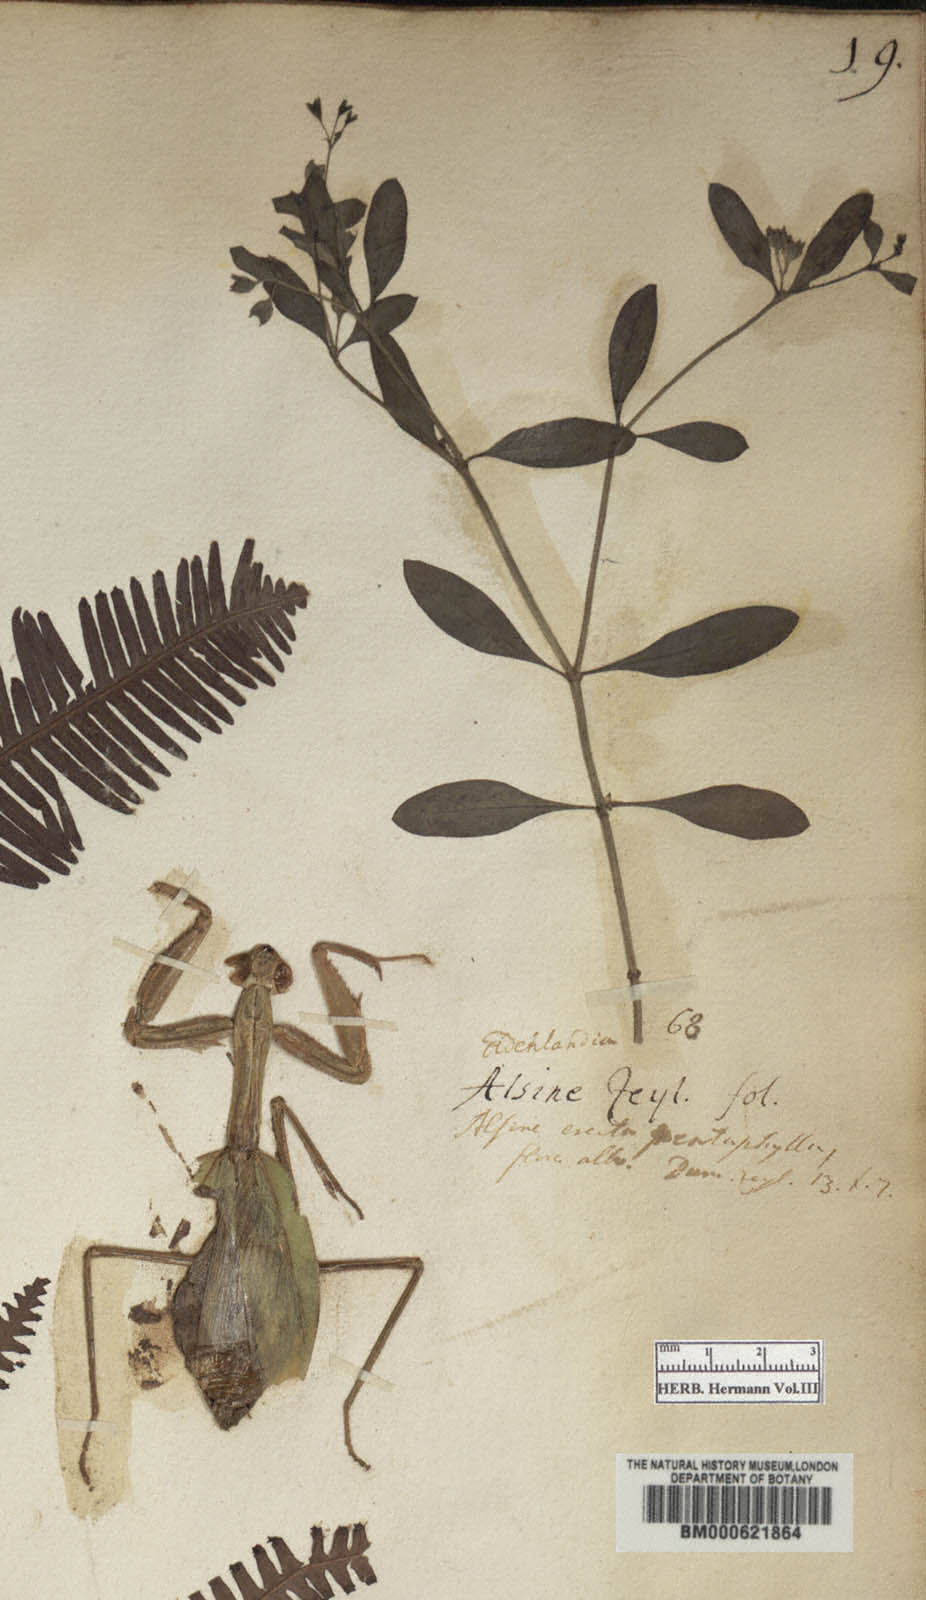 19.
68
Alsine Zeyl. fol.
Alsine erecta pentaphylla,
flore albo. Burm. zeyl. 13. t. 7.
mm 1 2 3
HERB. Hermann Vol.III
THE NATURAL HISTORY MUSEUM, LONDON
DEPARTMENT OF BOTANY
BM000621864